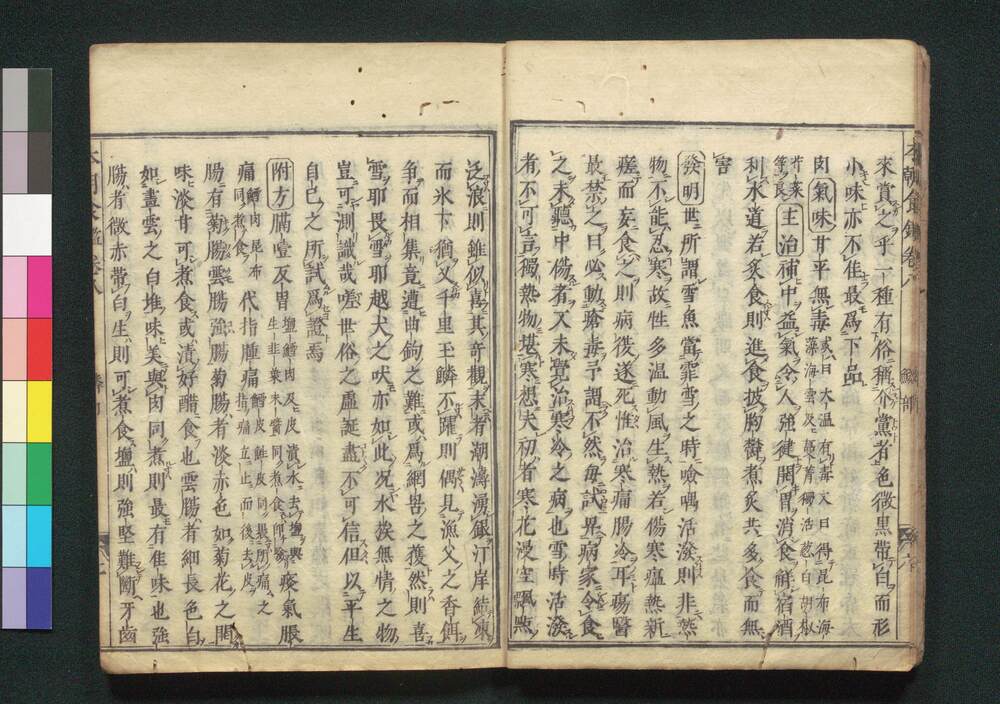 來賞之乎一種有俗稱介黨者色微黒帶白而形
小味亦不佳最爲下品
肉氣味甘平無毒或曰大温有毒又曰得昆布海藻海雲及蔓菁獨活葱白胡椒芥葉等良主治補中益氣令人強健開胃消食解宿酒
利水道若炙食則進食披胸鬱煮炙共多食而無
害
發明世所謂雪魚當霏雪之時噞喁活溌則非無
物不能忍寒故性多温動風生熱若傷寒瘟熱新
瘥而妄食之則病復遂死惟治寒痛腸冷耳瘍醫
最禁之曰必動瘡毒予謂不然毎試是病家令食
之未聽中傷者又未覺治寒冷之病也雪時活溌
者不可言獨熱物堪寒想夫初者寒花漫空風㸃
泛浪則雖似喜其奇觀末者潮漓湧銀汀岸結凍
而氷下猶又千里玉鱗不躍則偶見漁父之香餌
爭而相集竟遭曲鉤之難或爲網罟之獲然則喜
雪耶畏雪耶越犬之吠亦如此况水族無情之物
豈可測識哉嗟世俗之虚誕盡不可信但以平生
自己之所試爲證焉
附方膈噎反胃鹽鱈肉及皮漬水去鹽與生韭葉末醬同煮食即愈疼氣脹
痛鱈肉昆布同煮食代指腫痛鱈皮鮭皮同裹所痛之指痛立止而後去皮
腸有菊腸雲腸強腸菊腸者淡赤色如菊花之開
味淡甘可煮食或漬好醋食也雲腸者細長色白
如畫雲之白堆味美與肉同煮則最有佳味也強
腸者微赤帶白生則可煮食鹽則強堅難斷牙齒
本朝食鑑卷八
鱗部